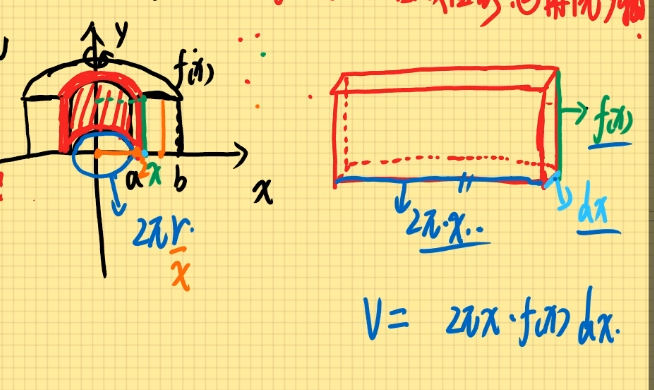 y
f(x)
a x b
x
2πr.
x
f(x)
dx
2π·x..
V = 2πx·f(x) dx.